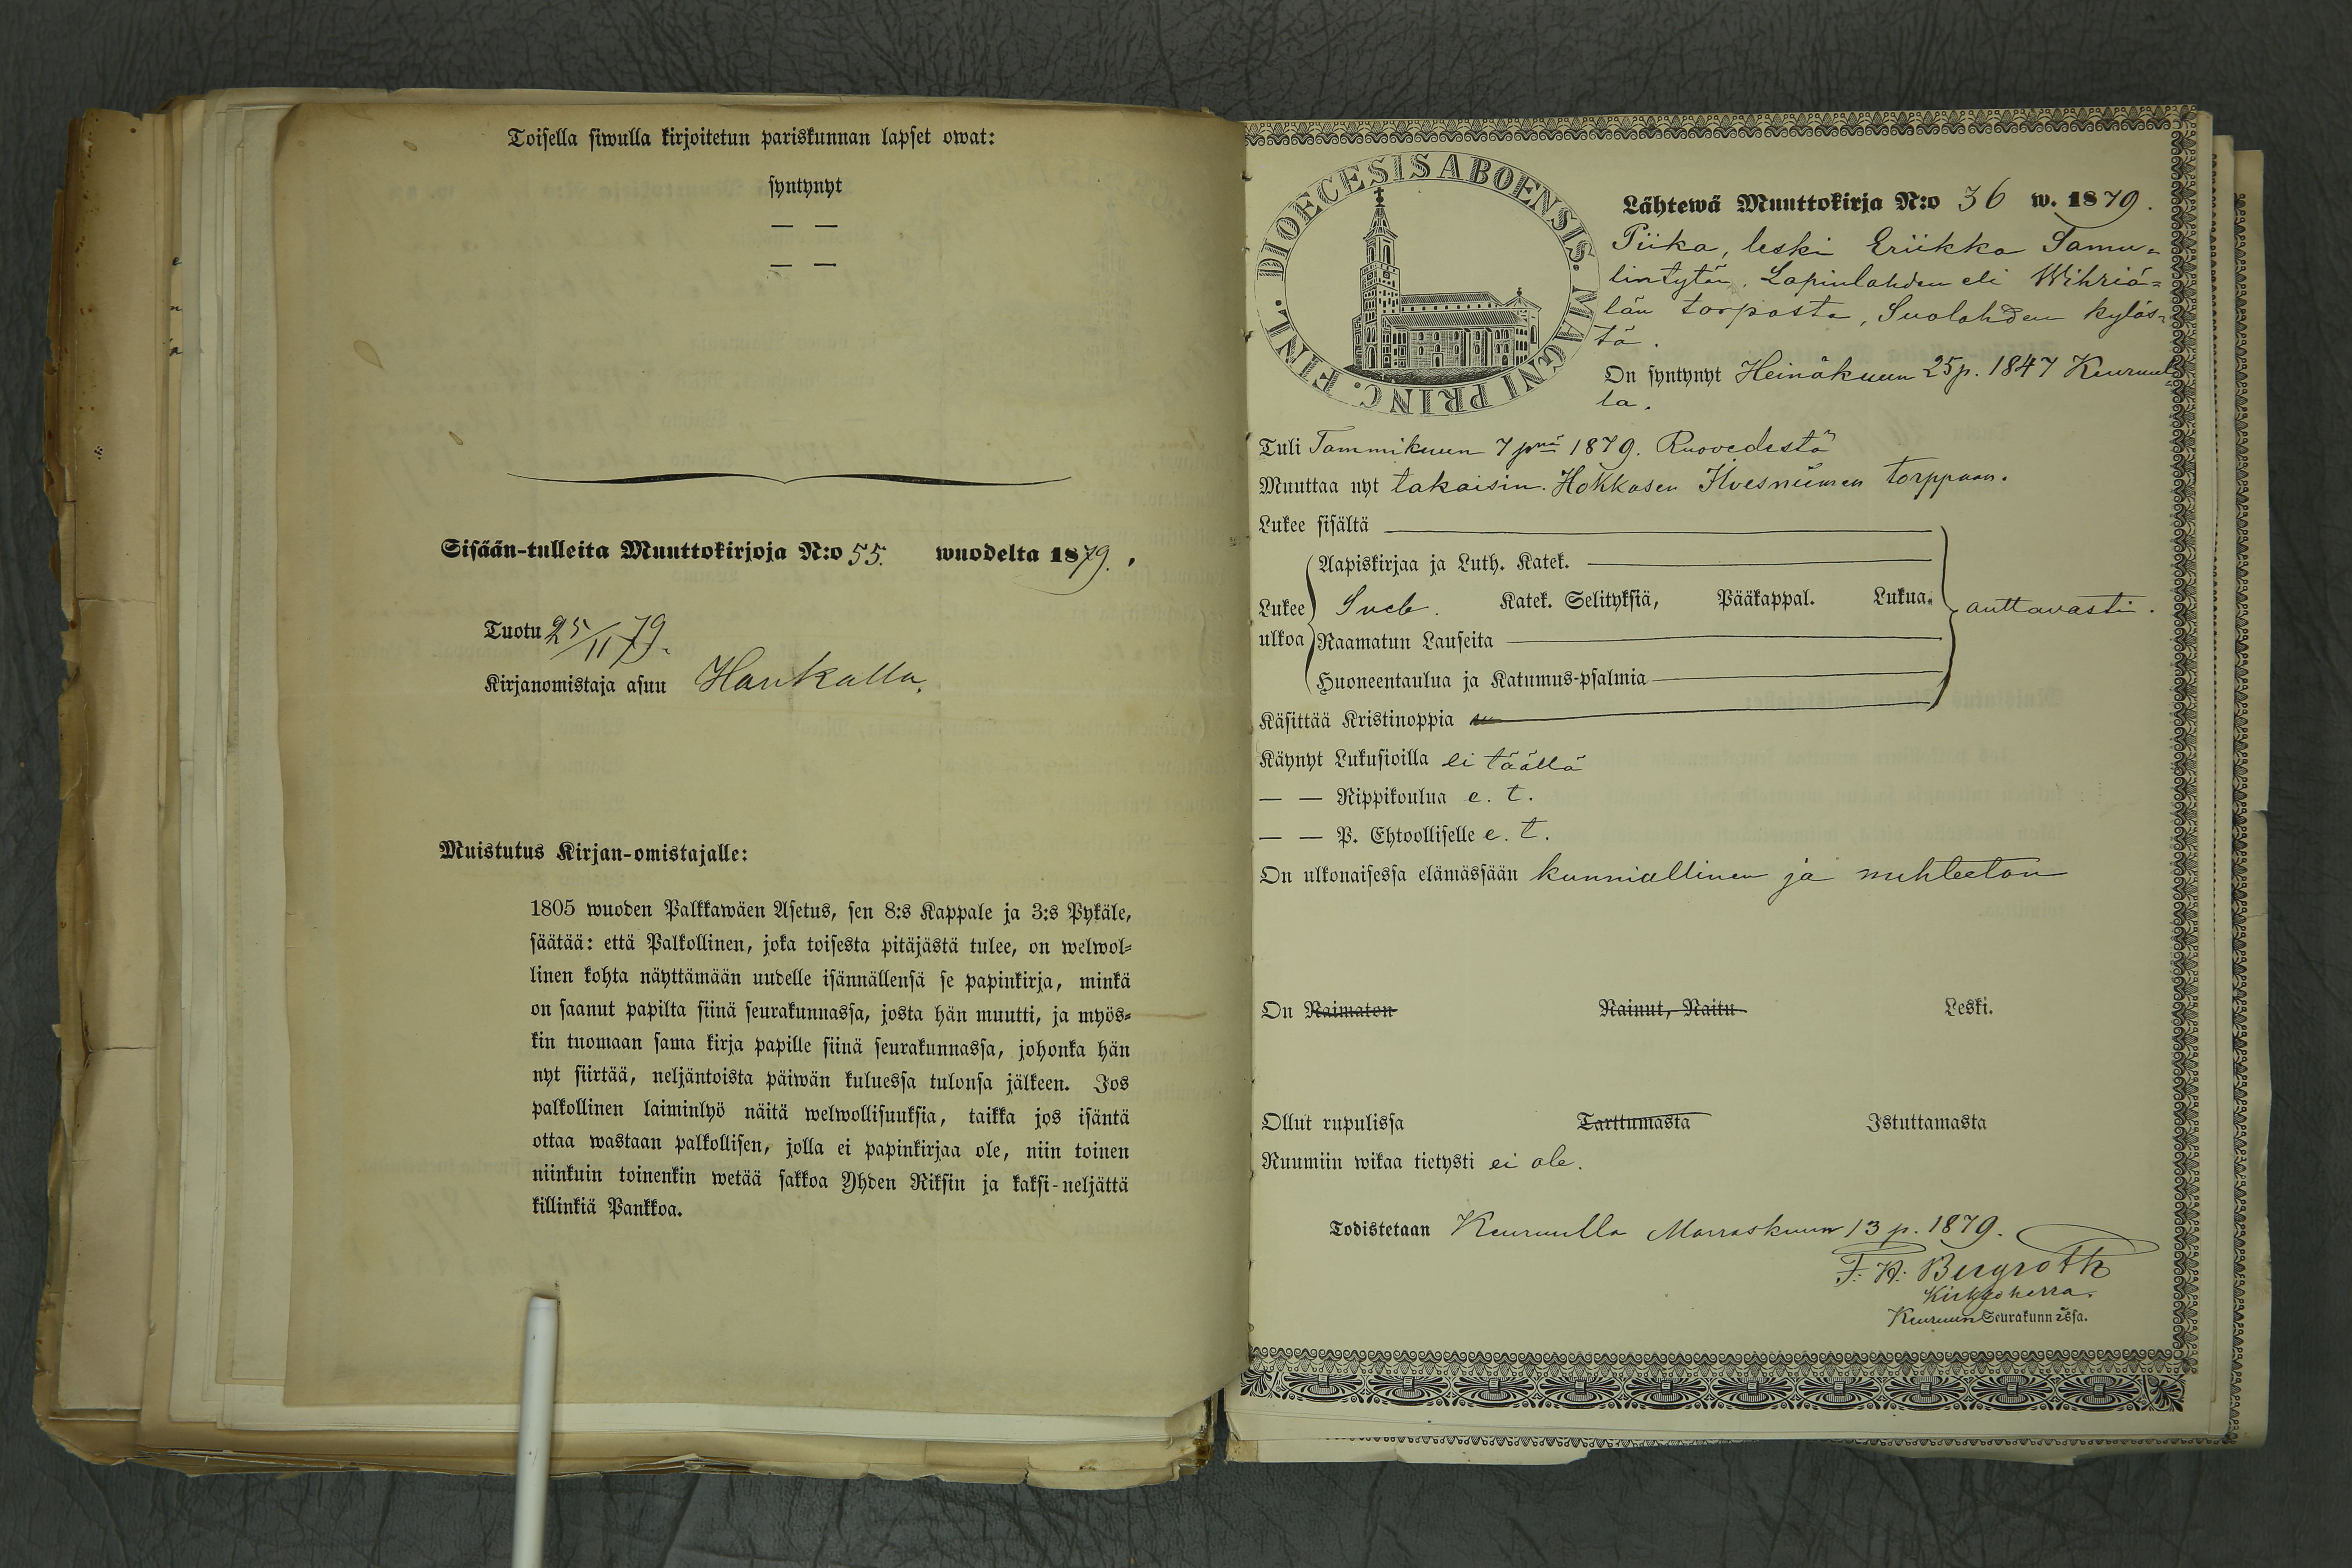 Toisella siwulla kirjoitetun pariskunnan lapset owat:
syntynyt
— —
— —
Sisään-tulleita Muuttokirjoja N:o 55. wuodelta 1879.
Tuotu 25/11 79.
Kirjanomistaja asuu
Muistutus Kirjan-omistajalle:
1805 wuoden Palkkawäen Asetus, sen 8:s Kappale ja 3:s Pykäle,
säätää: että Palkollinen, joka toisesta pitäjästä tulee, on welwol-
linen kohta näyttämään uudelle isännällensä se papinkirja, minkä
on saanut papilta siinä seurakunnassa, josta hän muutti, ja myös-
kin tuomaan sama kirja papille siinä seurakunnassa, johonka hän
nyt siirtää, neljäntoista päiwän kuluessa tulonsa jälkeen. Jos
palkollinen laiminlyö näitä welwollisuuksia, taikka jos isäntä
ottaa wastaan palkollisen, jolla ei papinkirjaa ole, niin toinen
niinkuin toinenkin wetää sakkoa Yhden Riksin ja kaksi-neljättä
killinkiä Pankkoa.
FINL. DIOECESIS ABOENSIS. MAGNI PRINC.
Lähtewä Muuttokirja N:o 36 w. 1879.
Piika, leski Eriikka Samu-
lintytär, Lapinlahden eli Wihriä-
län torpasta, Suolahden kyläs-
tä.
On syntynyt Heinäkuun 25 p. 1847 Keuruul
la.
Tuli Tammikuun 7 pnä 1879. Ruovedestä
Muuttaa nyt takaisin. Hokkasen Ilvesniemen torppaan.
Lukee sisältä
Aapiskirjaa ja Luth. Katek.
Lukee Sveb. Katek. Selityksiä, Pääkappal. Lukua. auttavasti.
ulkoa Raamatun Lauseita
Huoneentaulua ja Katumus-psalmia
Käsittää Kristinoppia
Käynyt Lukusioilla ei täällä
— — Rippikoulua e. t.
— — P. Ehtoolliselle e. t.
On ulkonaisessa elämässään kunniallinen ja nuhteeton
On Naimaton Nainut, Naitu Leski.
Ollut rupulissa Tarttumasta Istuttamasta
Ruumiin wikaa tietysti ei ole.
Todistetaan Keuruulla Marraskuun 13 p. 1879.
F. W. Bergroth
Kirkkoherra.
Keuruun Seurakunnassa.